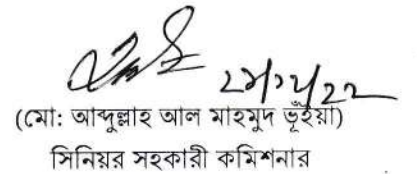 (মো: আব্দুল্লাহ আল মাহমুদ ভূঁইয়া)
সিনিয়র সহকারী কমিশনার